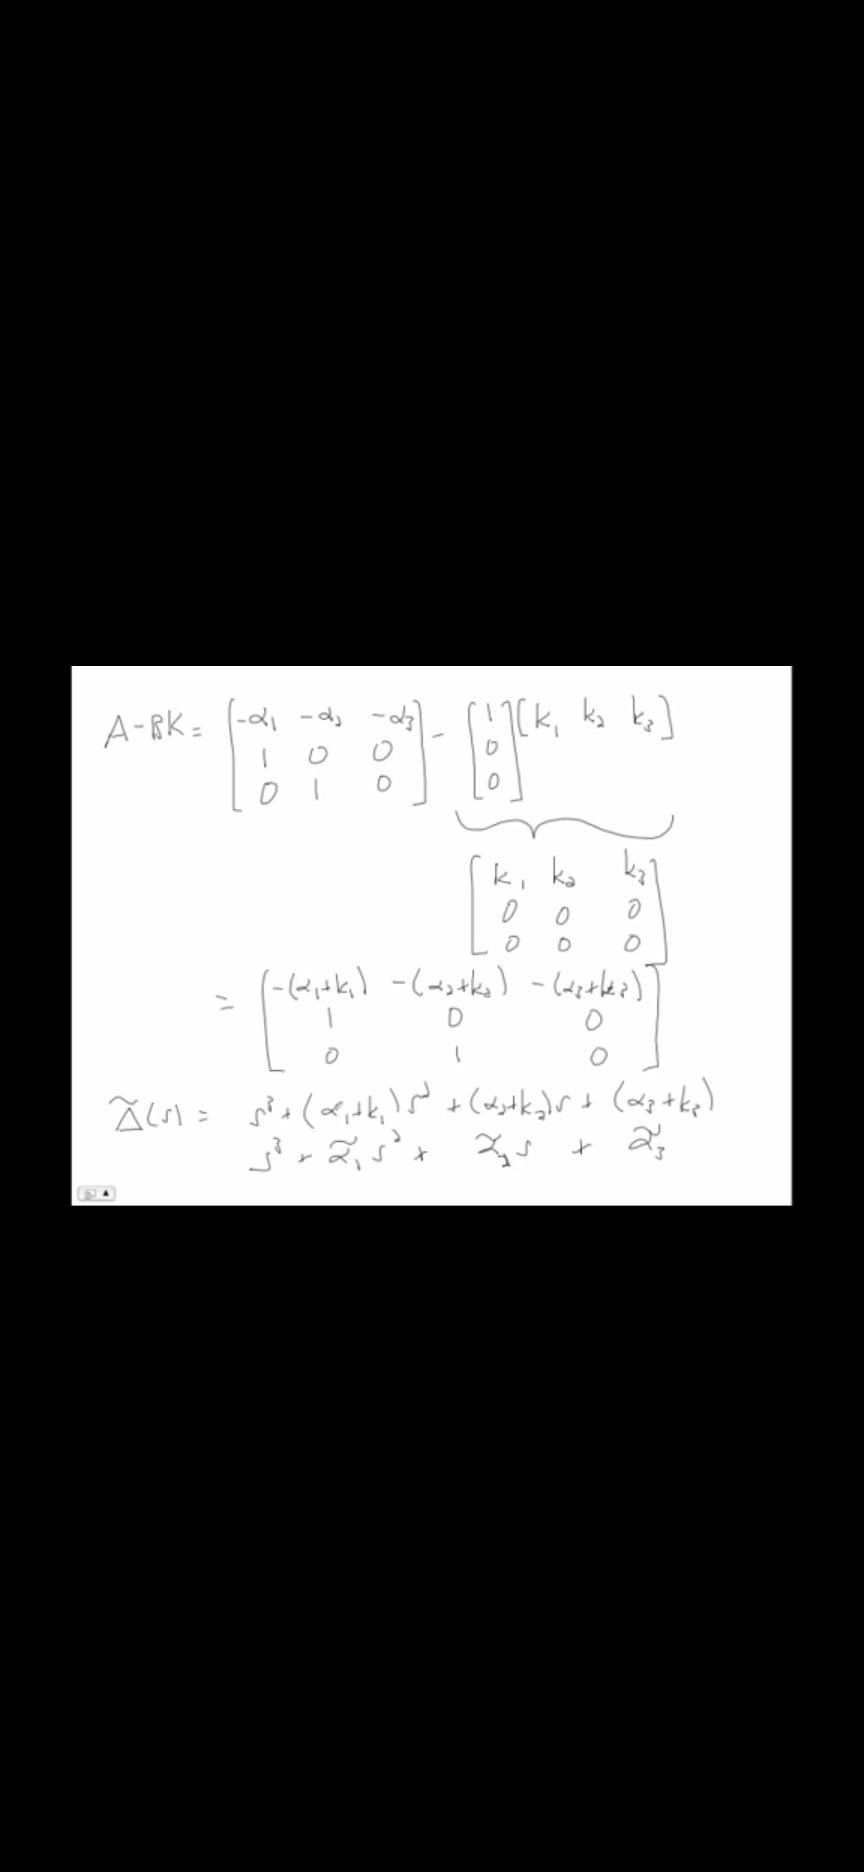 A-BK = [-α₁ -α₂ -α₃] - [1] [k₁ k₂ k₃]
1 0 0 0
0 1 0 0
k₁ k₂ k₃
0 0 0
0 0 0
= [-(α₁+k₁) -(α₂+k₂) -(α₃+k₃)]
1 0 0
0 1 0
Δ̃(s) = s³ + (α₁+k₁)s² + (α₂+k₂)s + (α₃+k₃)
s³ + α̃₁s² + α̃₂s + α̃₃